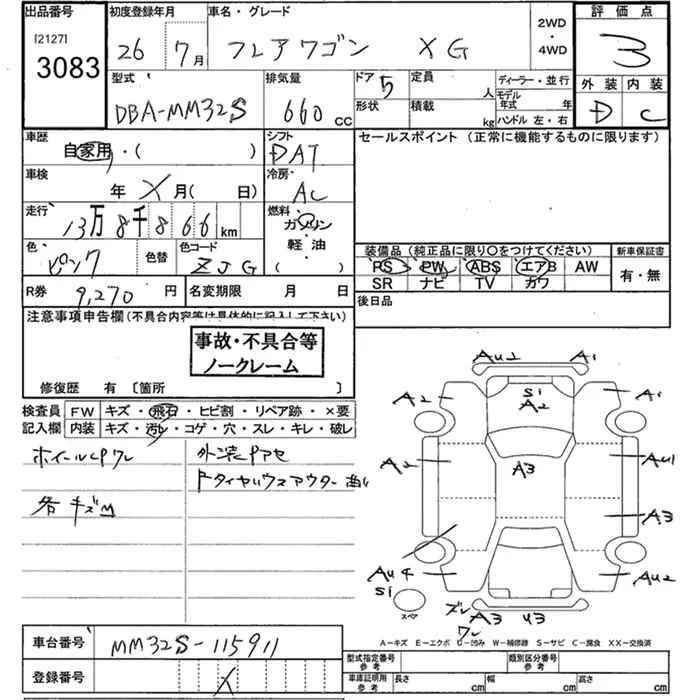 出品番号
[2127]
3083
初度登録年月
26 7月
車名・グレード
フレアワゴン XG
2WD
・
4WD
評価点
3
外装 内装
D C
型式
DBA-MM32S
排気量
660 cc
ドア 5
形状
定員 人
積載 kg
ディーラー・並行
モデル年式 年
ハンドル 左・右
車歴
自家用・( )
シフト
DAT
セールスポイント (正常に機能するものに限ります)
車検
年 X 月( 日)
冷房
AC
走行
13万8千866 km
燃料
ガソリン
・
軽油
( )
色
ピンク
色替
色コード
ZJG
装備品 (純正品に限り○をつけてください)
PS PW ABS エアB AW
SR ナビ TV カワ
新車保証書
有・無
R券 9,270 円
名変期限 月 日
後日品
注意事項申告欄 (不具合内容等は具体的に記入して下さい)
事故・不具合等
ノークレーム
修復歴 有 〔箇所 〕
検査員 FW キズ・飛石・ヒビ割・リペア跡・×要
記入欄 内装 キズ・汚レ・コゲ・穴・スレ・キレ・破レ
外装
各キズM
AU2 A1
A2 Si A2 A1
A2 A3 AU1
A3
AU4 AU2
Si
スペア
ズレ ワレ A3 U3
A-キズ E-エクボ U-凹み W-補修跡 S-サビ C-腐食 XX-交換済
車台番号 MM32S-115911
登録番号 X
型式指定番号 参考
類別区分番号 参考
車庫証明用 参考 長さ cm 幅 cm 高さ cm